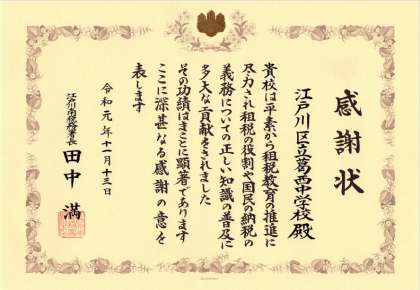 感謝状
江戸川区立葛西中学校殿
貴校は平素から租税教育の推進に
尽力され租税の役割や国民の納税の
義務についての正しい知識の普及に
多大な貢献をされました
その功績はまことに顕著であります
ここに深甚なる感謝の意を
表します
令和元年十一月十三日
江戸川南税務署長
田中 満